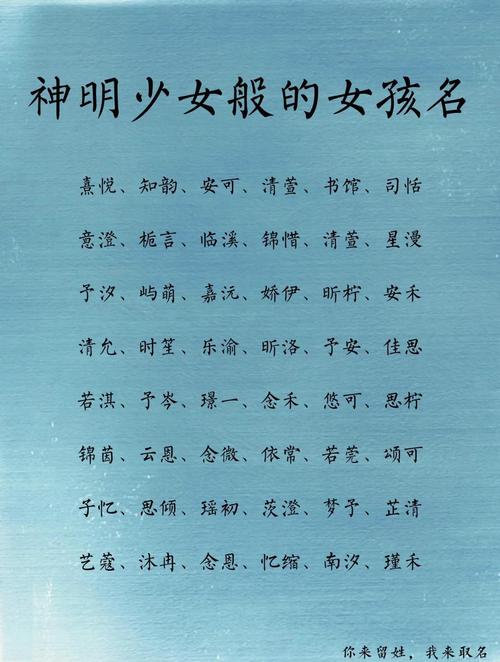 神明少女般的女孩名
熹悦、知韵、安可、清萱、书馆、司恬
意澄、栀言、临溪、锦惜、清萱、星漫
予汐、屿萌、嘉沅、娇伊、昕柠、安禾
清允、时笙、乐渝、昕洛、予安、佳思
若淇、予岑、璟一、念禾、悠可、思柠
锦茵、云恩、念微、依常、若莞、颂可
子忆、思倾、瑶初、茨澄、梦予、芷清
艺蔻、沐冉、念恩、忆缩、南汐、瑾禾
你来留姓，我来取名